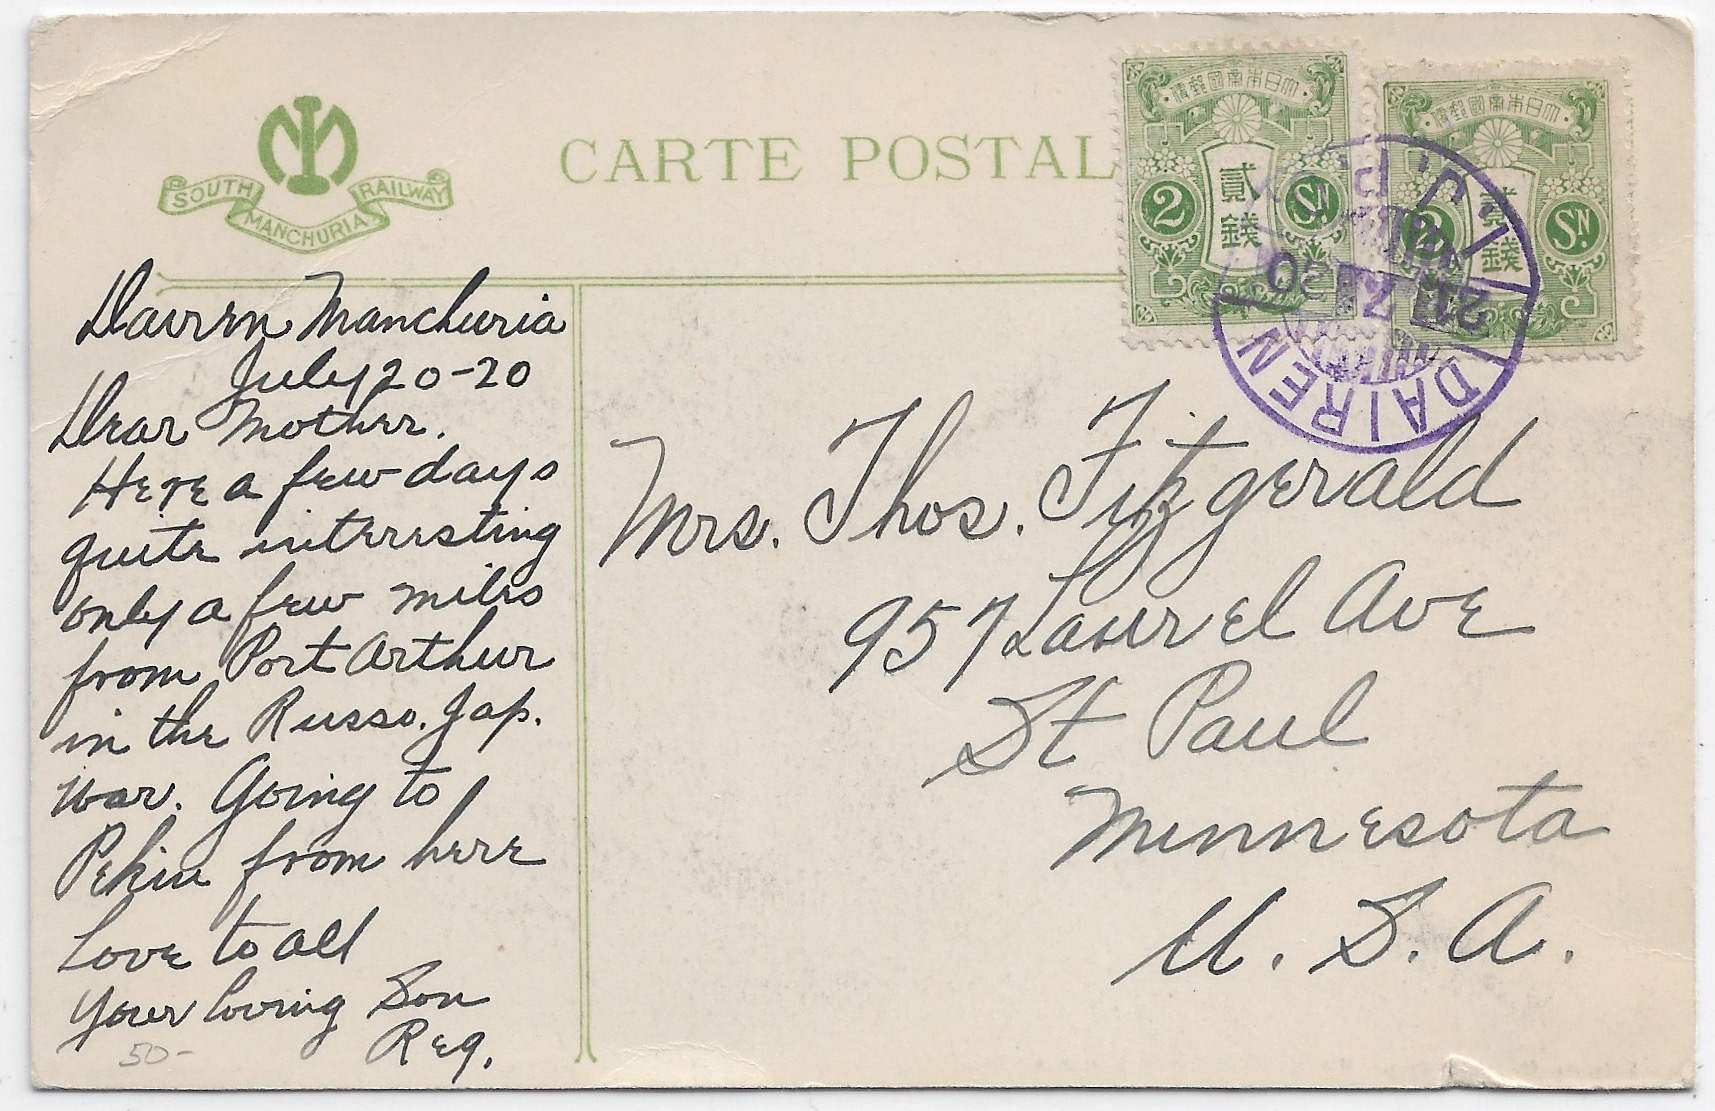 SOUTH MANCHURIA RAILWAY
CARTE POSTALE
大日本帝國郵便
貳錢
2 SN.
大日本帝國郵便
貳錢
2 SN.
DAIREN
21.7.20
I.J.P.
Dairen Manchuria
July 20-20
Dear Mother.
Here a few days
quite interesting
only a few miles
from Port Arthur
in the Russo. Jap.
war. Going to
Pekin from here
Love to all
Your loving Son
Reg.
50-
Mrs. Thos. Fitzgerald
957 Laurel Ave
St Paul
Minnesota
U. S. A.